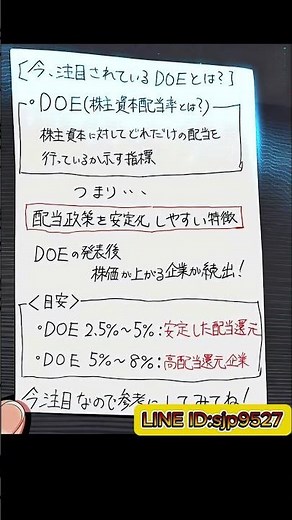 [今、注目されているDOEとは?]
・DOE(株主資本配当率とは?)
株主資本に対してどれだけの配当を
行っているか示す指標
つまり・・・
配当政策を安定化しやすい特徴
DOEの発表後
株価が上がる企業が続出!
<目安>
・DOE 2.5%~5%:安定した配当還元
・DOE 5%~8%:高配当還元企業
今注目なので参考にしてみてね!
LINE ID:sjp9527